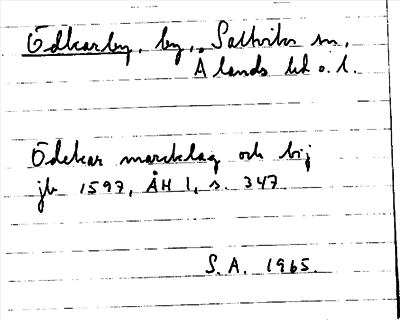 Ödkarby, by, Saltviks sn,
Ålands hd o. l.
Ödekar marcklag och bij
jb 1597, ÅH 1, s. 347
S. A. 1965.